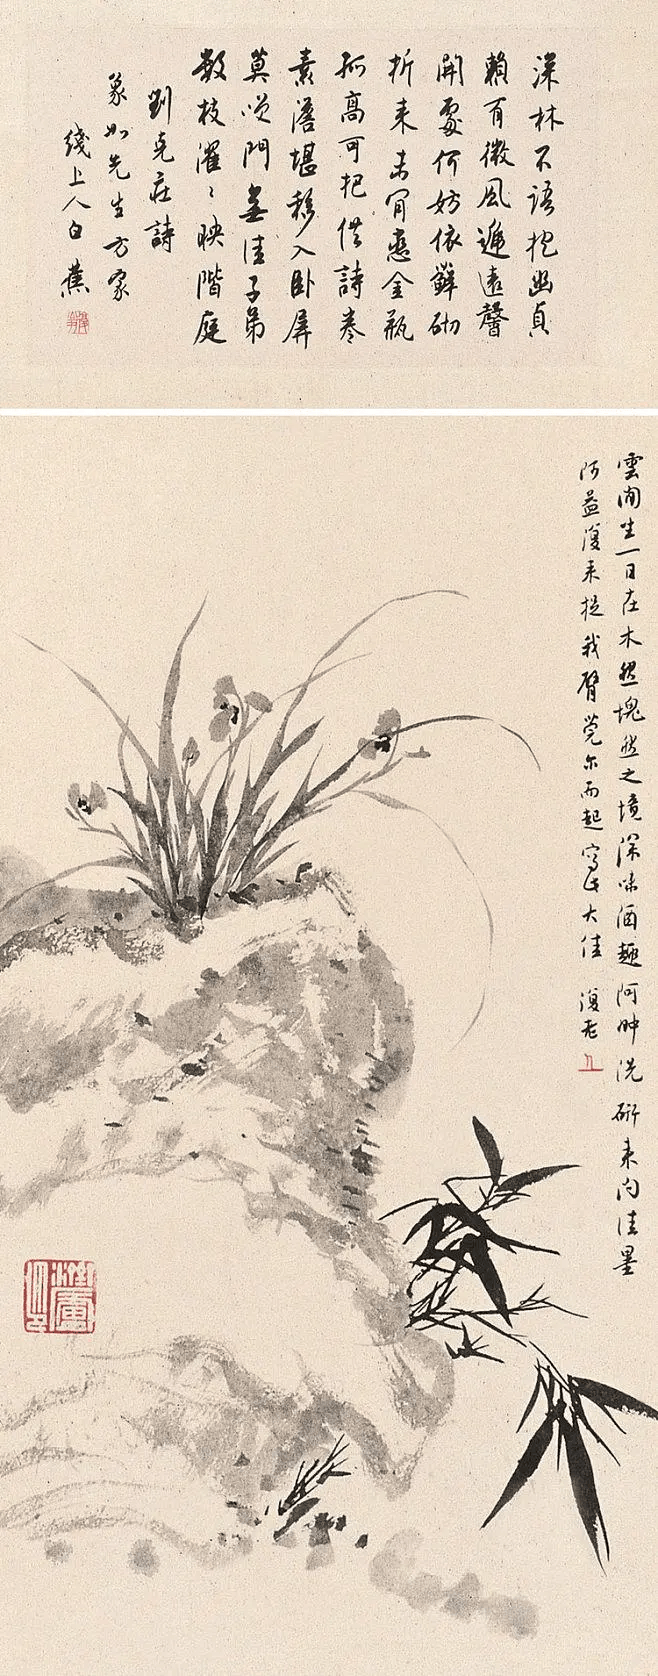 深林不語抱幽貞
賴有微風遞遠馨
開處何妨依蘚砌
折来未肎戀金瓶
孤高可挹供詩卷
素澹堪移入卧屏
莫嘆門無佳子弟
數枝濯〻映階庭
劉克莊詩
象如先生方家
綫上人白蕉
雲間生一日在木然塊然之境深味酒趣阿翀洗研来問佳墨
阿益復来捉我臂莞尔而起寫此大佳 復老